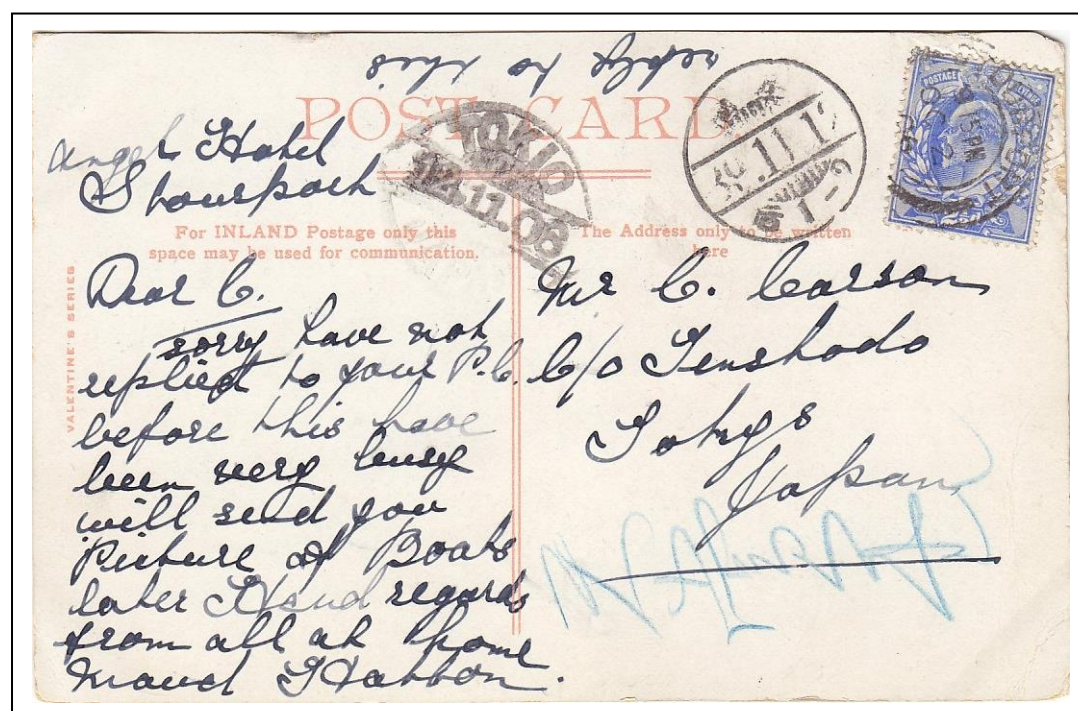 reply to this
POST CARD
Angel Hotel
Stourport
For INLAND Postage only this
space may be used for communication.
The Address only to be written
here
VALENTINE'S SERIES
TOKIO
11.06
39.11.1
POSTAGE
Dear C.
sorry have not
replied to your P.C.
before this have
been very busy
will send you
Picture of Boats
later Kind regards
from all at home
Maud
Mr C. Carson
C/o Tenshodo
Tokyo
Japan